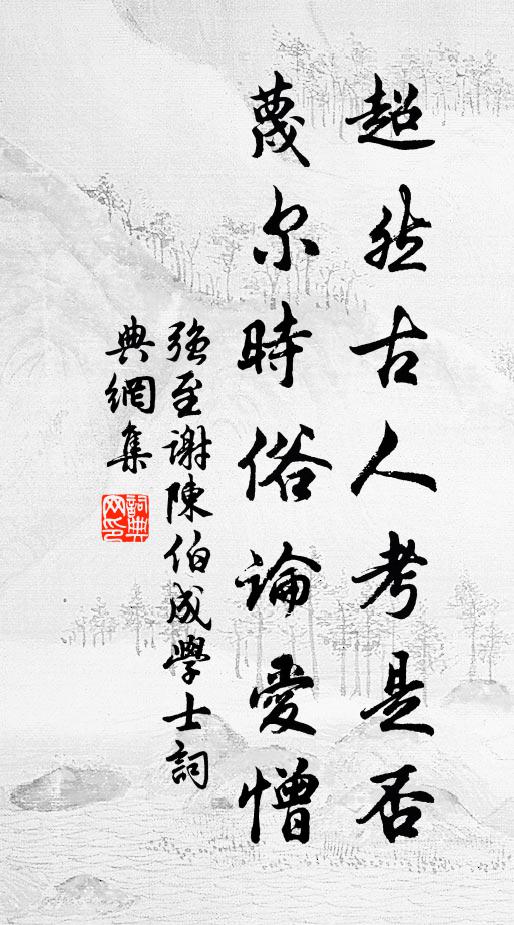 超然古人考是否
蔑尔時俗論愛憎
强至谢陳伯成學士詞
典網集
詞典
网印